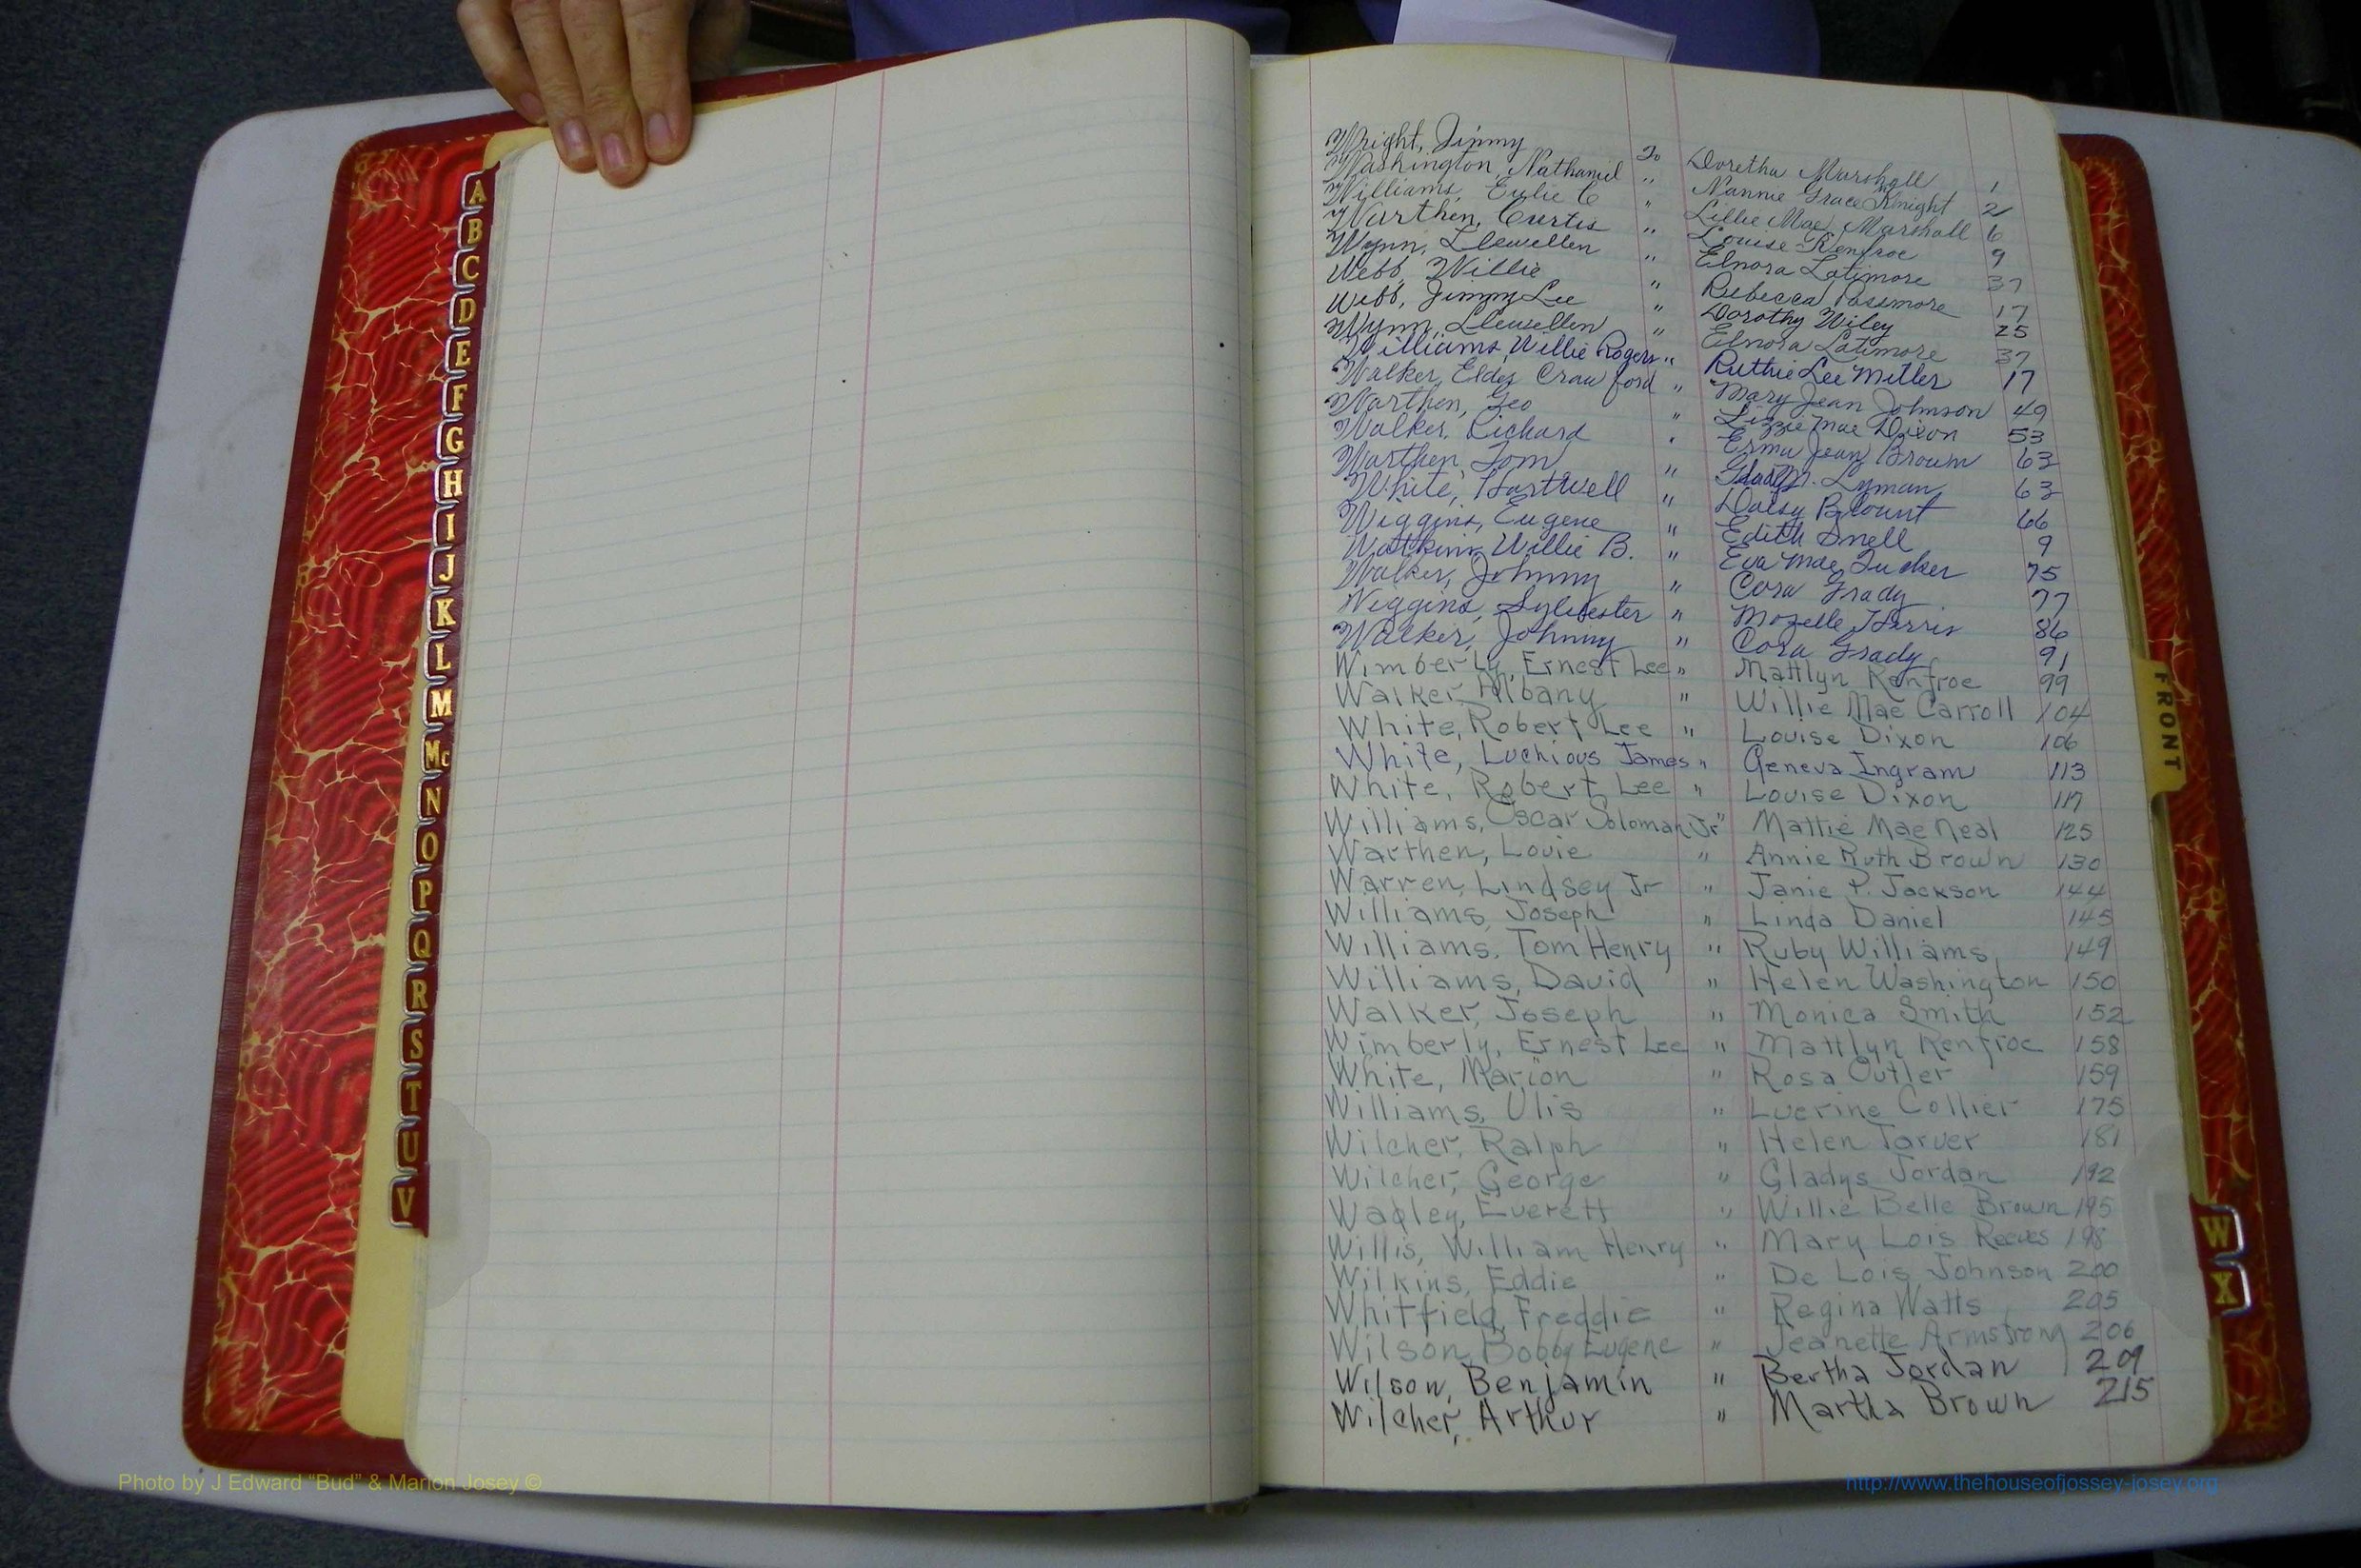 A
B
C
D
E
F
G
H
I
J
K
L
M
Mc
N
O
P
Q
R
S
T
U
V
Wright, Jimmy To Doretha Marshall 1
Washington, Nathaniel " Nannie Grace Knight 2
Williams, Eulie C " Lillie Mae Marshall 6
Warthen, Curtis " Louise Renfroe 9
Wynn, Llewellen " Elnora Latimore 37
Webb, Willie " Rebecca Passmore 17
Webb, Jimmy Lee " Dorothy Wiley 25
Wynn, Llewellen " Elnora Latimore 37
Williams, Willie Rogers " Ruthie Lee Miller 17
Walker, Elder Crawford " Mary Jean Johnson 49
Warthen, Geo " Lizzie Mae Dixon 53
Walker, Richard " Erma Jean Brown 63
Warthen, Tom " M. Lyman 63
White, Hartwell " Daisy Blount 66
Wiggins, Eugene " Edith Snell 9
Watkins, Willie B. " Eva Mae Tucker 75
Walker, Johnny " Cora Grady 77
Wiggins, Sylvester " Mozelle Harris 86
Walker, Johnny " Cora Grady 91
Wimberly, Ernest Lee " Mattlyn Renfroe 99
Walker, Albany " Willie Mae Carroll 104
White, Robert Lee " Louise Dixon 106
White, Luchious James " Geneva Ingram 113
White, Robert Lee " Louise Dixon 117
Williams, Oscar Soloman Jr " Mattie Mae Neal 125
Warthen, Louie " Annie Ruth Brown 130
Warren, Lindsey Jr " Janie P. Jackson 144
Williams, Joseph " Linda Daniel 145
Williams, Tom Henry " Ruby Williams 149
Williams, David " Helen Washington 150
Walker, Joseph " Monica Smith 152
Wimberly, Ernest Lee " Mattlyn Renfroe 158
White, Marion " Rosa Outler 159
Williams, Ulis " Luerine Collier 175
Wilcher, Ralph " Helen Tarver 181
Wilcher, George " Gladys Jordan 192
Wadley, Everett " Willie Belle Brown 195
Willis, William Henry " Mary Lois Reeves 198
Wilkins, Eddie " De Lois Johnson 200
Whitfield, Freddie " Regina Watts 205
Wilson, Bobby Eugene " Jeanette Armstrong 206
Wilson, Benjamin " Bertha Jordan 209
Wilcher, Arthur " Martha Brown 215
FRONT
W
X
Photo by J Edward “Bud” & Marion Josey ©
http://www.thehouseofjossey-josey.org